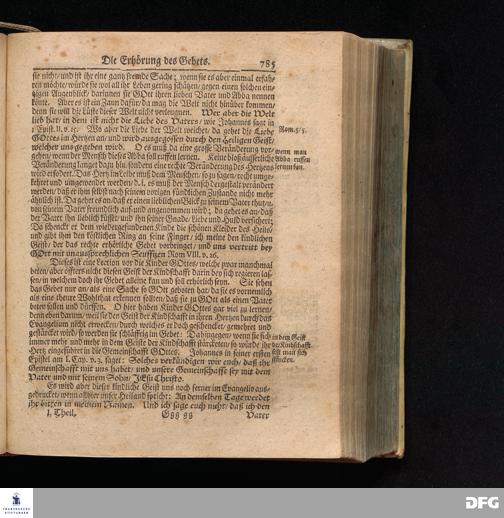 Die Erhörung des Gebets. 785
sie nicht/ und ist ihr eine gantz fremde Sache; wenn sie es aber einmal erfah-
ren möchte/ würde sie wol all ihr Leben gering schätzen/ gegen einen solchen ein-
tzigen Augenblick/ darinnen sie GOtt ihren lieben Vater und Abba nennen
könte. Aber es ist ein Zaun dafür/ da mag die Welt nicht hinüber kommen/
denn sie will die Lüste dieser Welt nicht verleugnen. Wer aber die Welt
lieb hat/ in dem ist nicht die Liebe des Vaters/ wie Johannes sagt in
1 Epist. II. v. 15. Wo aber die Liebe der Welt weichet/ da gehet die Liebe
GOttes im Hertzen an/ und wird ausgegossen durch den Heiligen Geist/
welcher uns gegeben wird. O es muß da eine grosse Veränderung vor-
gehen/ wenn der Mensch dieses Abba soll ruffen lernen. Keine bloß äusserliche
Veränderung langet dazu hin/ sondern eine rechte Veränderung des Hertzens
wird erfodert. Das Hertz im Leibe muß dem Menschen/ so zu sagen/ recht umge-
kehret und umgewendet werden/ d. i. es muß der Mensch dergestalt verändert
werden/ daß er ihm selbst nach seinem vorigen sündlichen Zustande nicht mehr
ähnlich ist. Da gehet es an/ daß er einen lieblichen Blick zu seinem Vater thut/ u.
von seinem Vater freundlich auf und angenommen wird; da gehet es an/ daß
der Vater ihn lieblich küsset/ und ihn seiner Gnade/ Liebe und Huld versichert;
Da schenckt er dem wiedergefundenen Kinde die schönen Kleider des Heils/
und gibt ihm den köstlichen Ring an seine Finger/ ich meine den kindlichen
Geist/ der das rechte erhörliche Gebet vorbringet/ und uns vertritt bey
GOtt mit unaussprechlichen Seufftzen Rom VIII. v. 26.
Dieses ist eine Lection vor die Kinder GOttes/ welche zwar manchmal
beten/ aber öffters nicht diesen Geist der Kindschafft darin bey sich regieren las-
sen/ in welchem doch ihr Gebet alleine kan und soll erhörlich seyn. Sie sehen
das Gebet nur an/ als eine Sache so GOtt geboten hat/ da sie es vornemlich
als eine theure Wohlthat erkennen sollten/ daß sie zu GOtt als einen Vater
beten sollen und dürffen. O hier haben Kinder GOttes gar viel zu lernen/
denn eben darum/ weil sie den Geist der Kindschafft in ihren Hertzen durch das
Evangelium nicht erwecken/ durch welches er doch geschencket/ gemehret und
gestärcket wird/ so werden sie schläffrig im Gebet: Dahingegen/ wenn sie sich
immer mehr und mehr in dem Geiste der Kindschafft stärcketen/ so würde ihr
Hertz eingeführet in die Gemeinschafft GOttes. Johannes in seiner ersten
Epistel am I. Cap. v. 3. saget: Solches verkündigen wir euch/ daß ihr
Gemeinschafft mit uns habet/ und unsere Gemeinschafft sey mit dem
Vater und mit seinem Sohn/ JEsu Christo.
Es wird aber dieser kindliche Geist uns noch ferner im Evangelio aus-
gedrucket/ wenn allhier unser Heiland spricht: An demselben Tage werdet
ihr bitten in meinem Namen. Und ich sage euch nicht/ daß ich den
I. Theil. Ggg gg Vater
Rom. 5/5.
wenn man
Abba ruffen
lernen soll.
in dem Geist
der Kindschafft
soll man sich
stärcken.
FRANCKESCHE
STIFTUNGEN
DFG